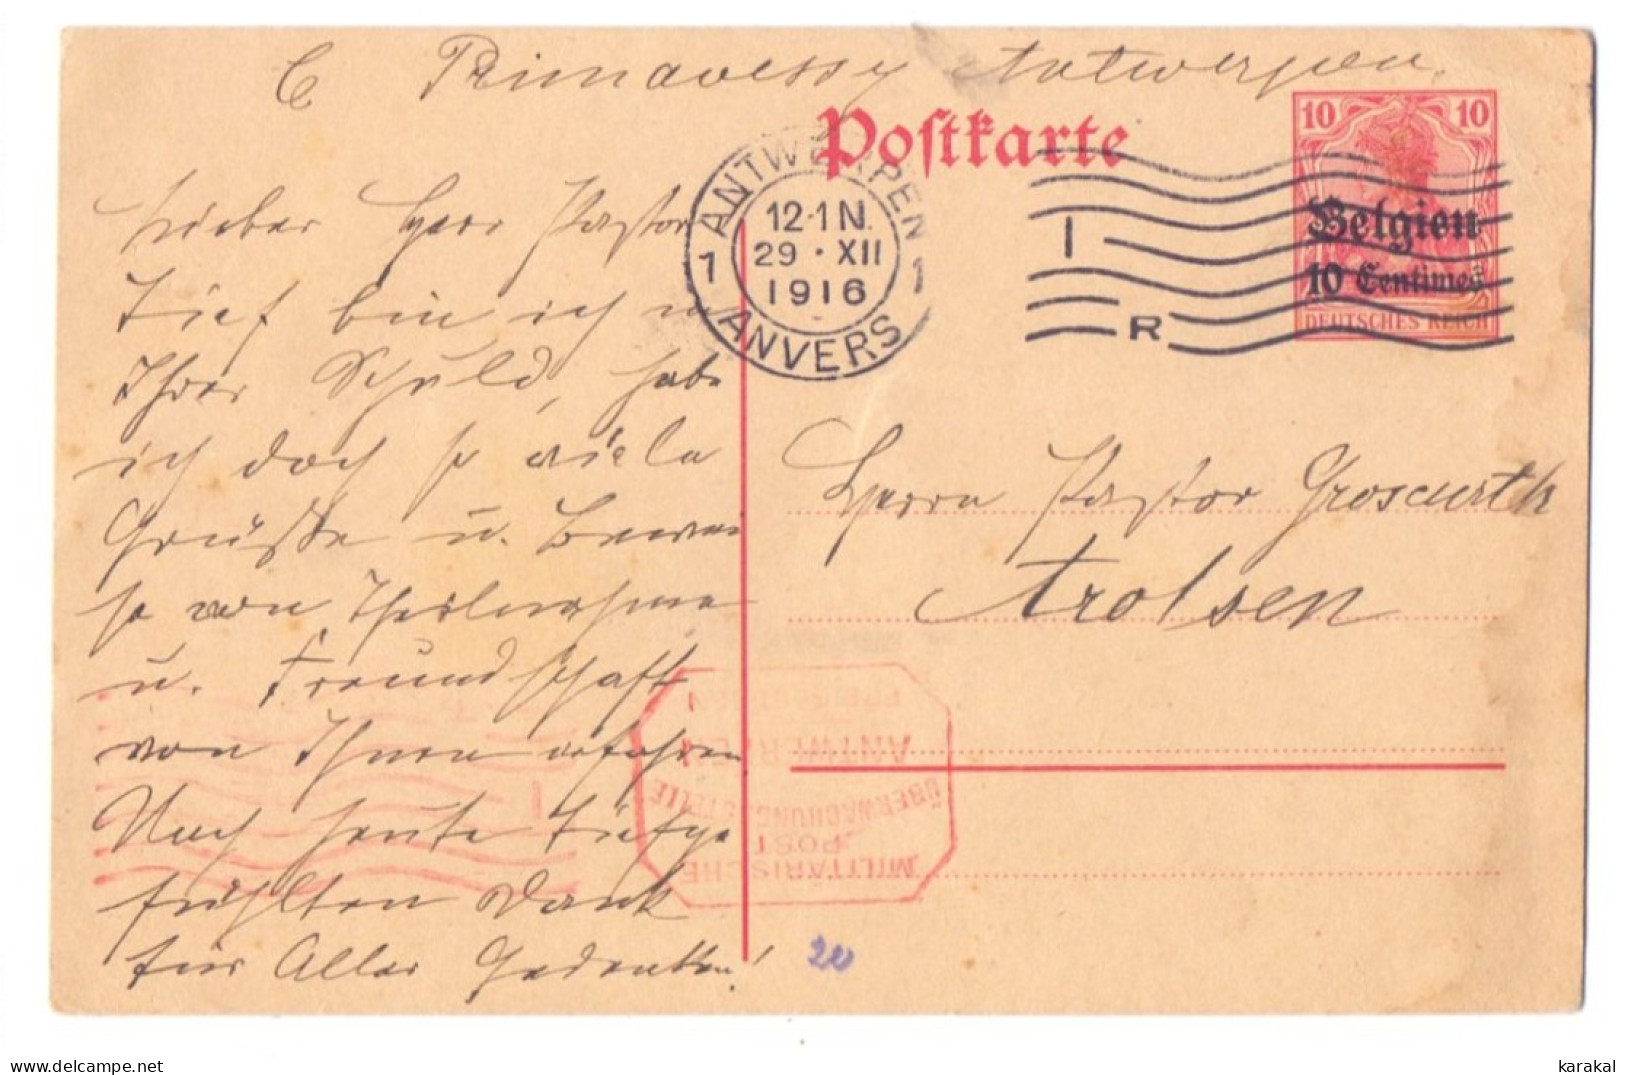 C Primavessy Antwerpen.
Postkarte
10 10
Belgien
10 Centimes
DEUTSCHES REICH
ANTWERPEN
1 12-1N. 1
29·XII
1916
ANVERS
I
R
Lieber Herr Pastor
Tief bin ich in
Ihrer Schuld, habe
ich doch so viele
Grüße u. Bewei
se von Theilnahme
u. Freundschaft
von Ihnen erfahren
Noch heute tiefge
fühlten Dank
für Alles Gedenken!
Herrn Pastor Groscurth
Arolsen
MILITÄRISCHE
POST
ÜBERWACHUNGSSTELLE
ANTWERPEN
I
20
karakal